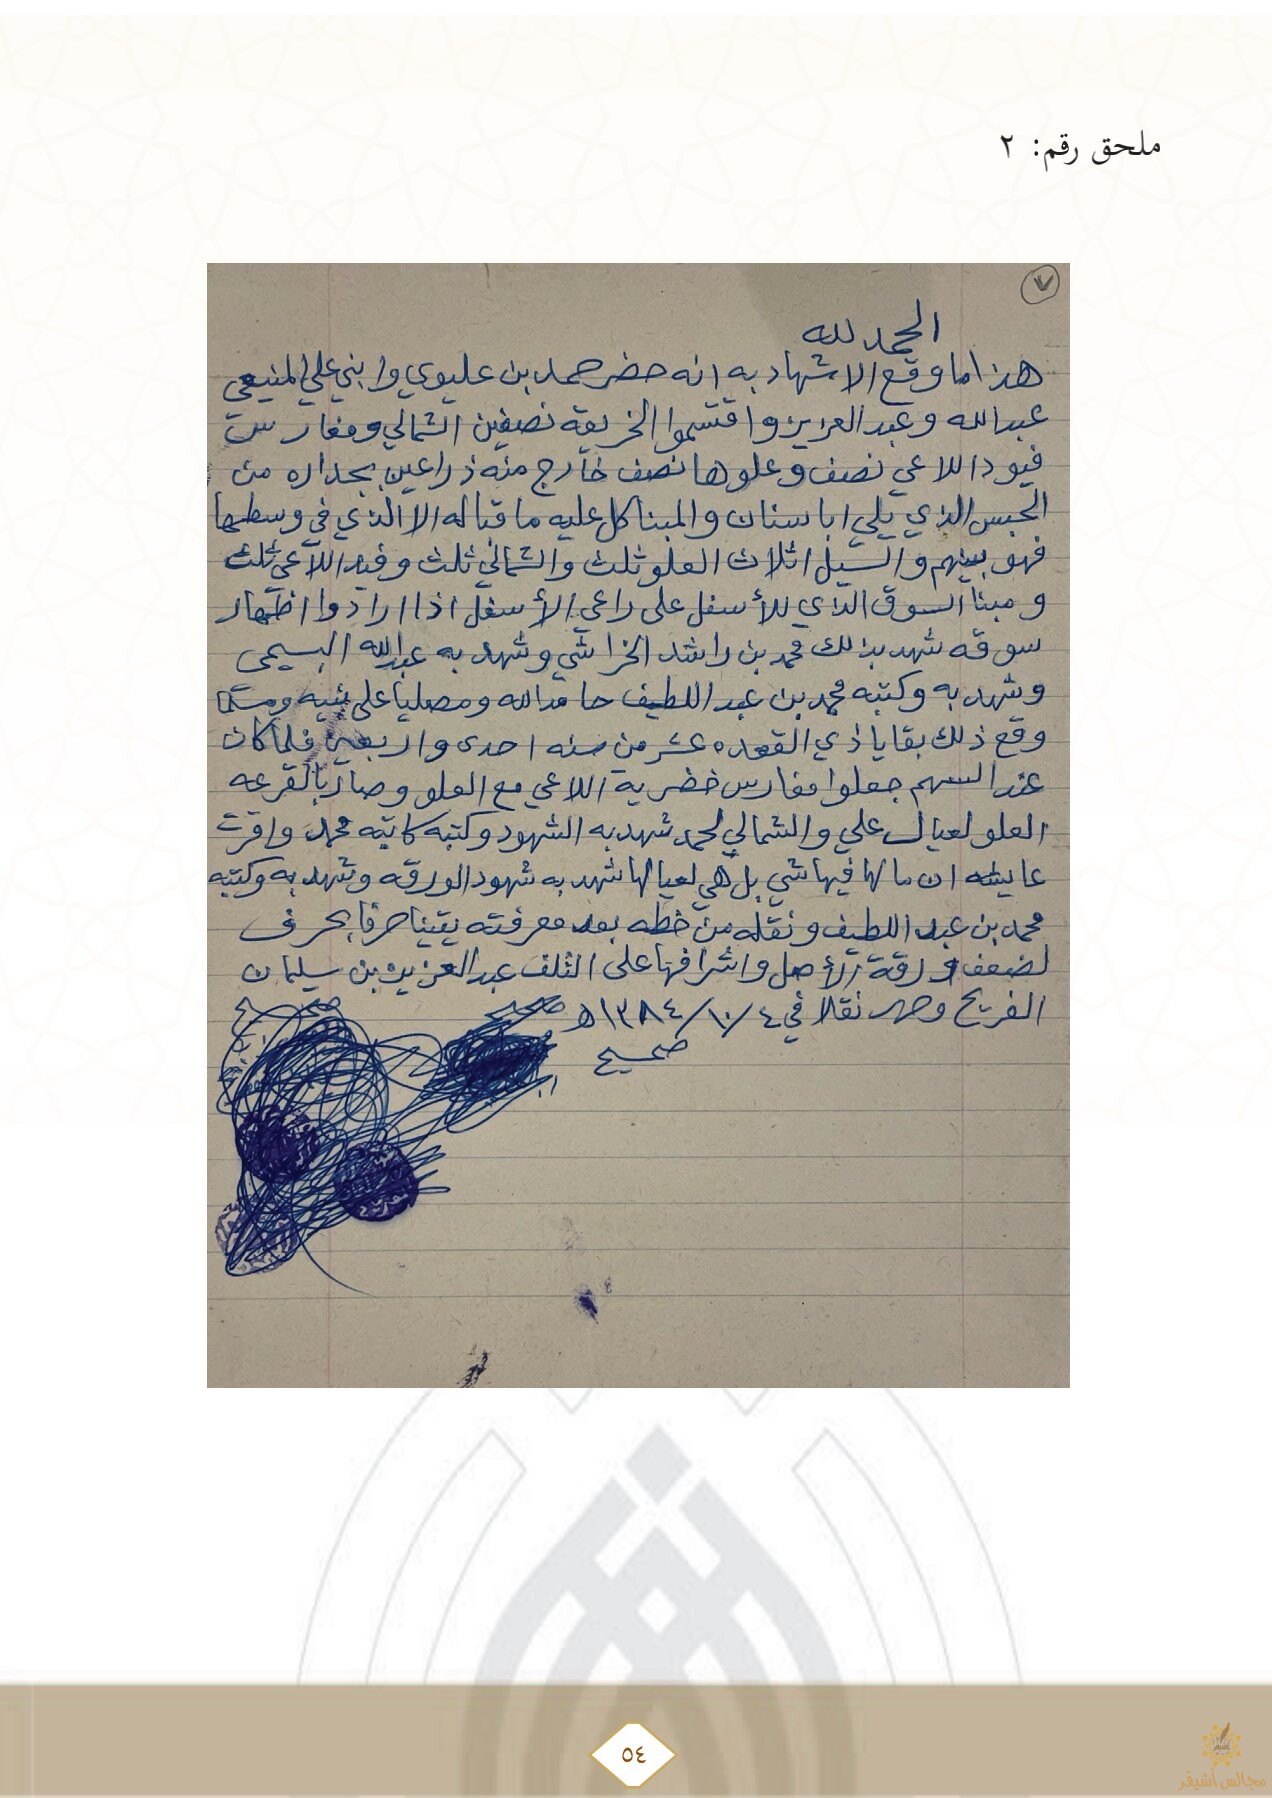 ملحق رقم: ٢
٧
الحمد لله
هذا ما وقع الاشهاد به انه حضر حمد بن عليوي وابني علي المنيعي
عبدالله وعبدالعزيز واقتسموا الخريقة نصفين الشمالي ومغارست
فيود اللاعي نصف وعلوها نصف خارج منه ذراعين بجداره من
الجبس الذي يلي اباسنان والمبنا كل عليه ما قباله الا الذي في وسطها
فهو بينهم والسيل اثلاث العلو ثلث والشمالي ثلث وفيد اللاعي ثلث
ومبنا السوق الذي للأسفل على راعي الأسفل اذا ارادوا اظهار
سوقه شهد بذلك محمد بن راشد الخراشي وشهد به عبدالله البسيمي
وشهد به وكتبه محمد بن عبد اللطيف حامدا لله ومصليا على نبيه ومسلما
وقع ذلك بقايا ذي القعده عشر من سنه احدى واربعين فلما كان
عند السهم جعلوا مغارس خضرية اللاعي مع العلو وصار بالقرعه
العلو لعيال علي والشمالي لحمد شهد به الشهود وكتبه كاتبه محمد واقرت
عايشه ان ما لها فيها شي بل هي لعيالها شهد به شهود الورقه وشهد به وكتبه
محمد بن عبد اللطيف ونقله من خطه بعد معرفته يقينا حرفا بحرف
لضعف ورقة الأصل واشرافها على التلف عبدالعزيز بن سليمان
الفريح وصدر نقلا في ١٣٨٤/١٠/٤ه صحيح صحيح
صحيح
٥٤
مجالس أشيقر